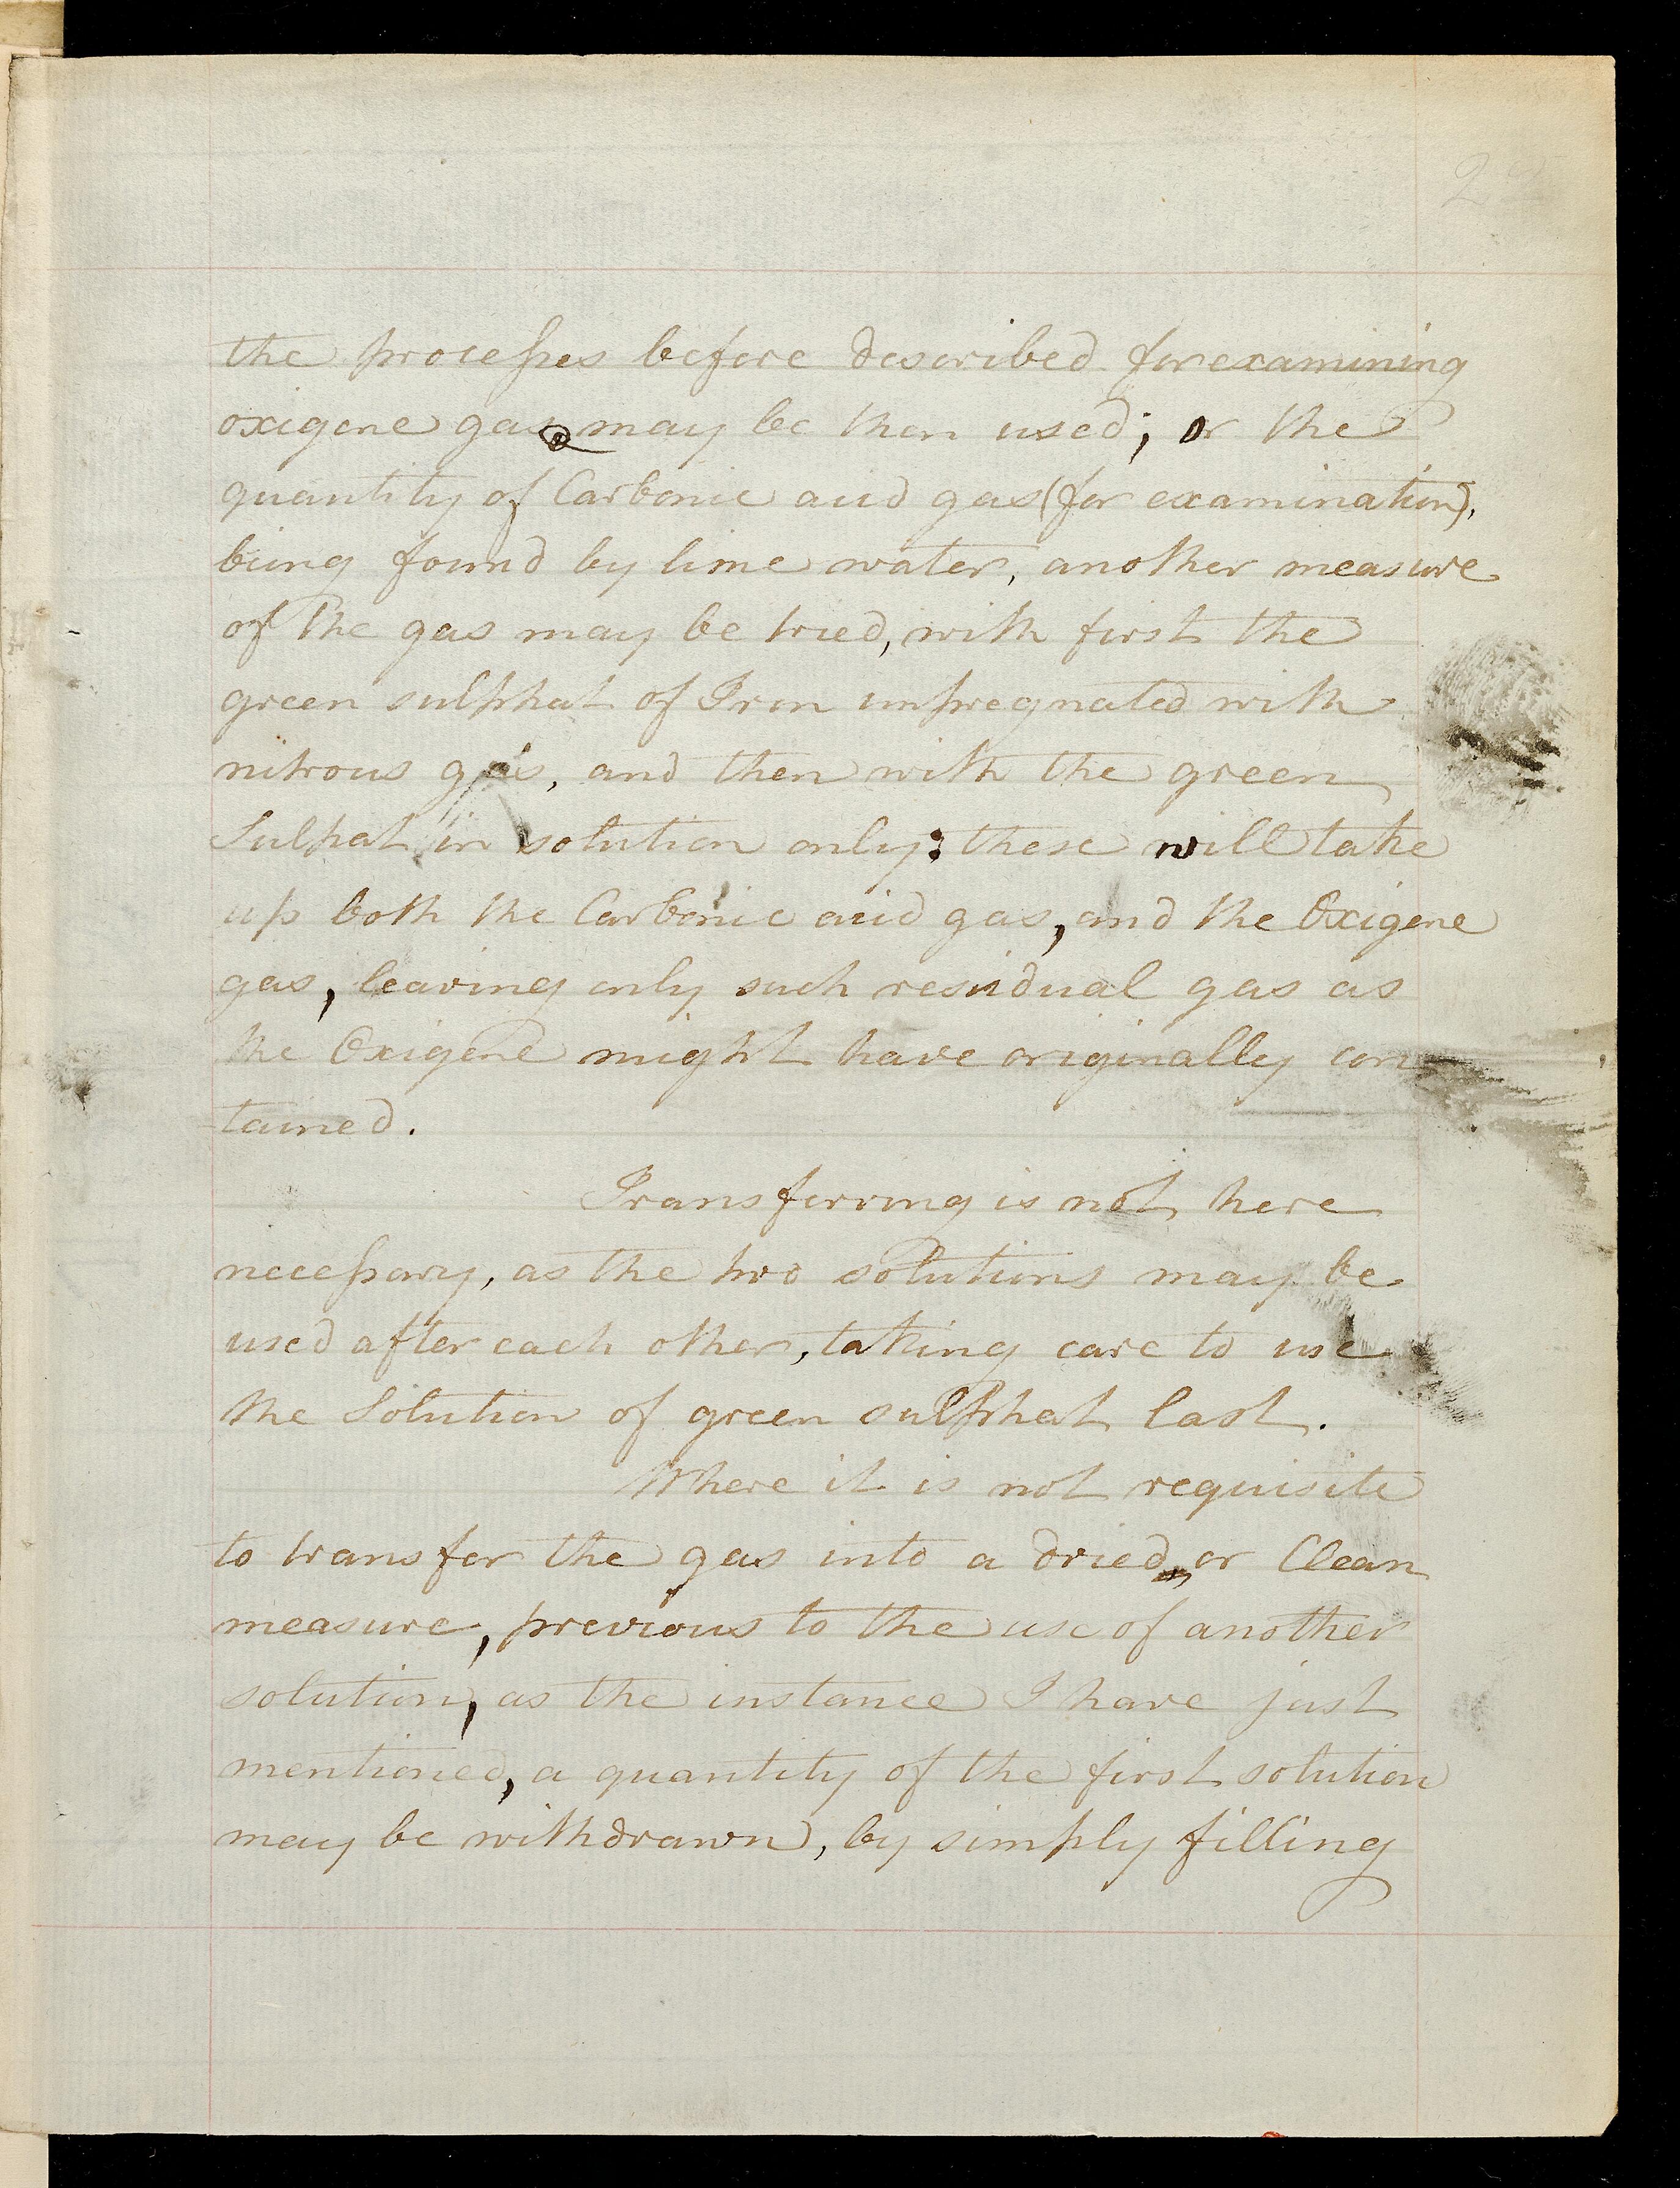 the processes before described for examining
oxigene gas may be then used; or the
quantity of Carbonic acid gas (for examination),
being found by lime water, another measure
of the gas may be tried, with first the
green sulphat of Iron impregnated with
nitrous gas, and then with the green
Sulphat in solution only: these will take
up both the Carbonic acid gas, and the Oxigene
gas, leaving only such residual gas as
the Oxigene might have originally con
tained.
Transferring is not here
necessary, as the two solutions may be
used after each other, taking care to use
the Solution of green sulphat last.
Where it is not requisite
to transfer the gas into a dried, or Clean
measure, previous to the use of another
solution, as the instance I have just
mentioned, a quantity of the first solution
may be withdrawn, by simply filling